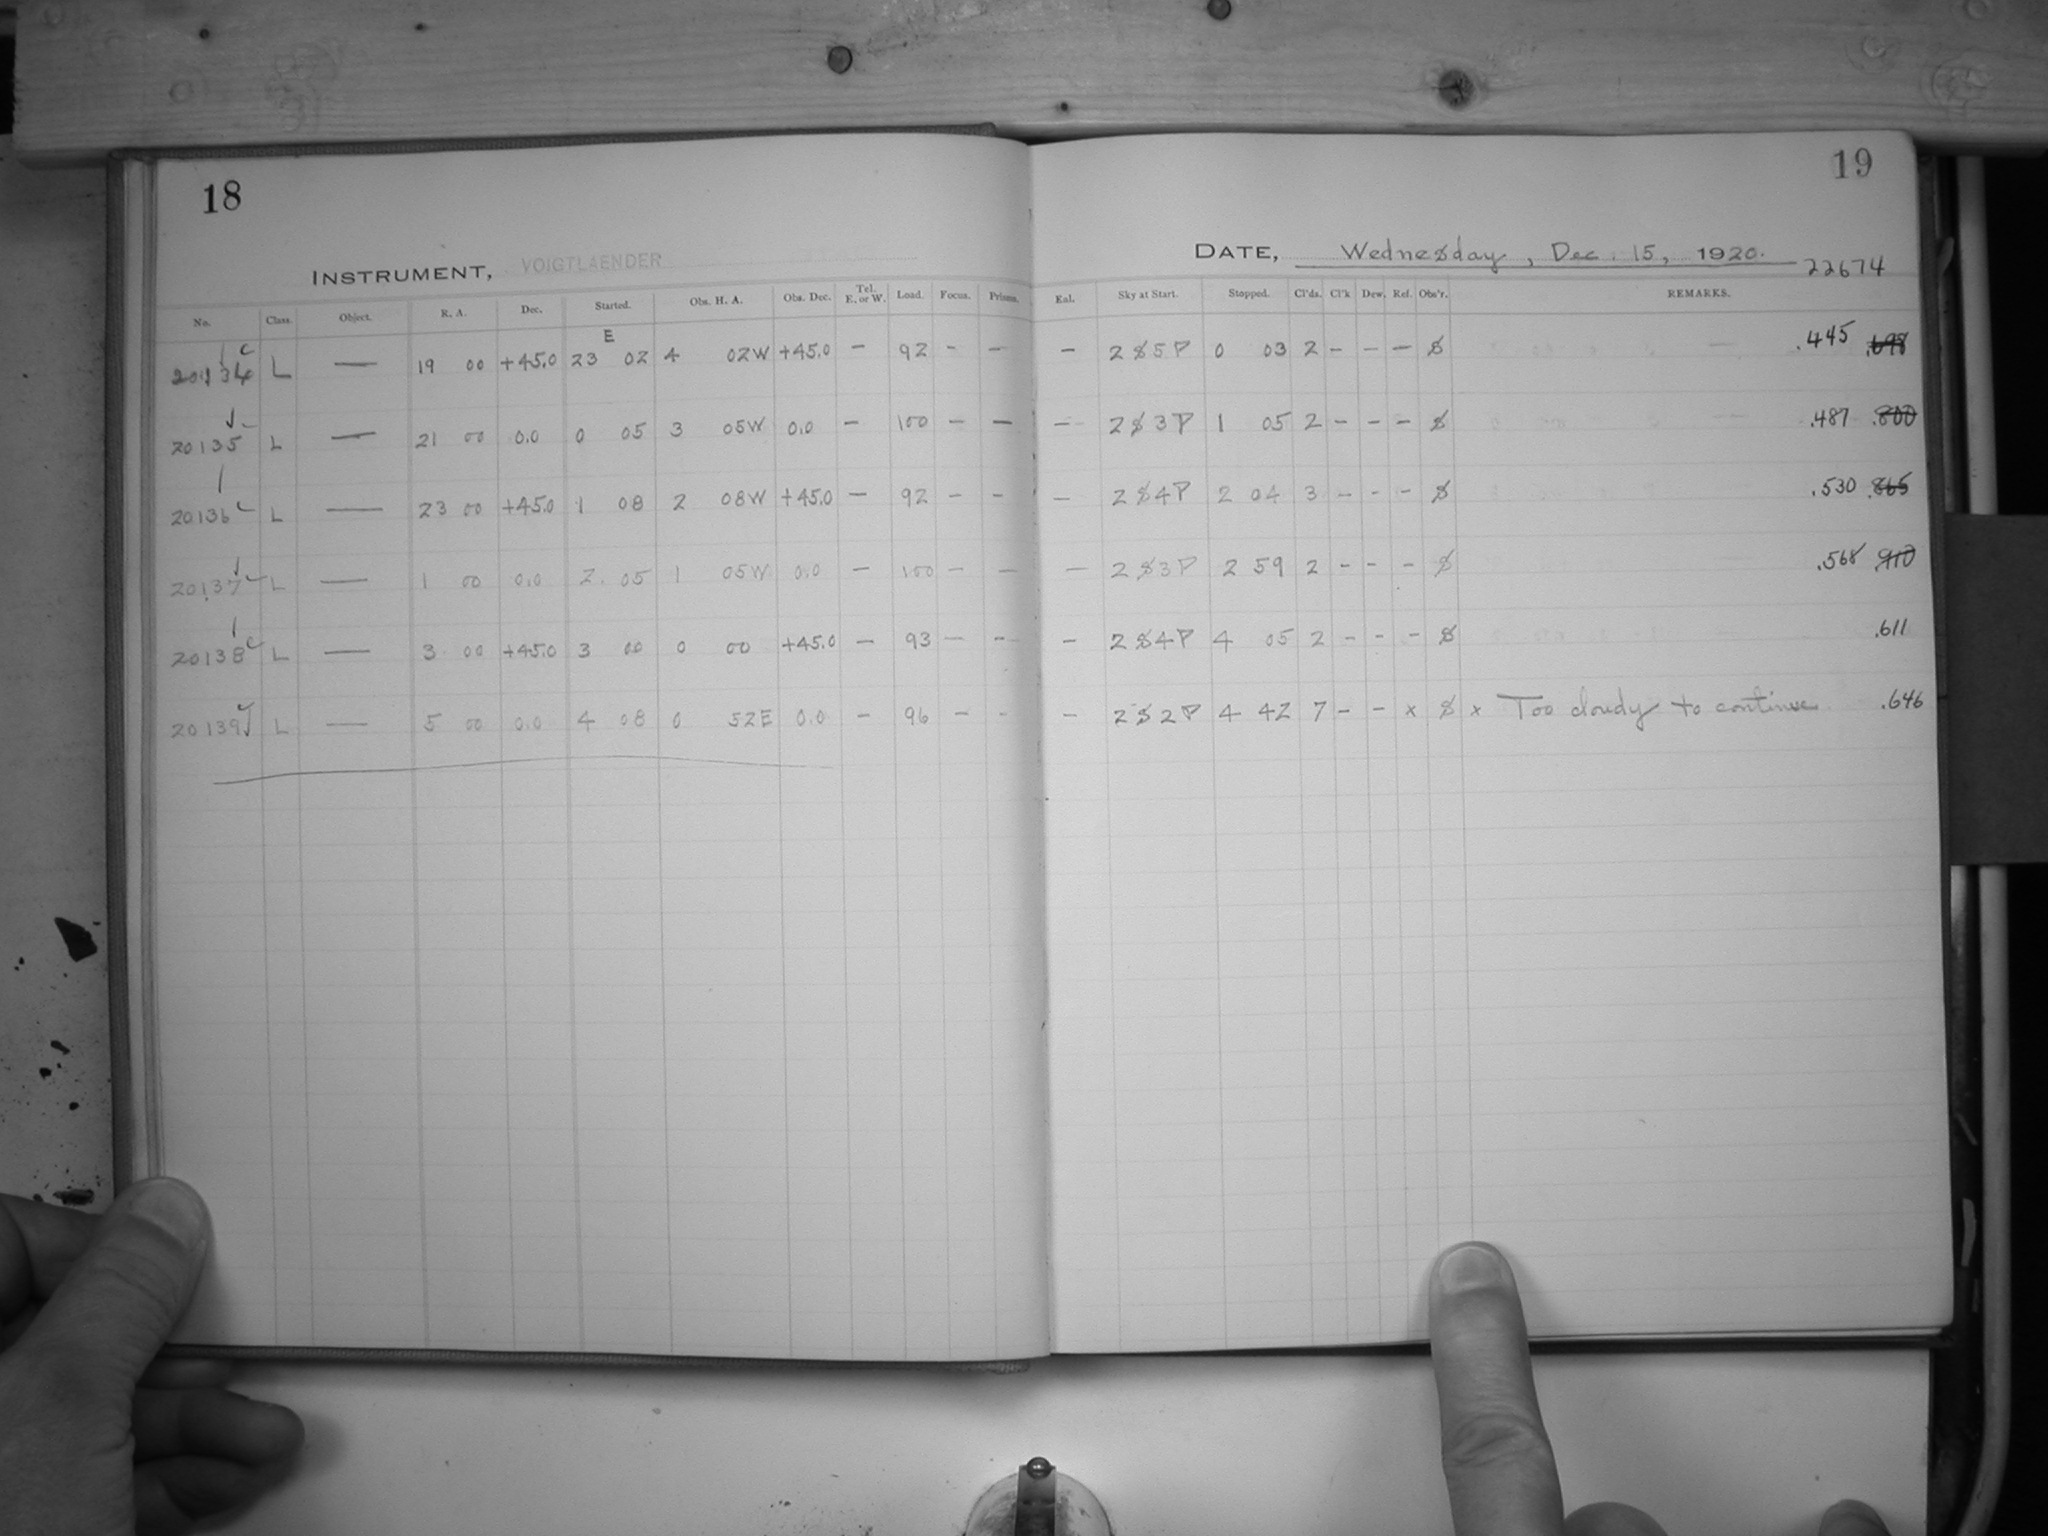 18
INSTRUMENT, VOIGTLAENDER
No. Class. Object. R. A. Dec. Started. Obs. H. A. Obs. Dec. Tel. E. or W. Load. Focus. Prisms.
E
20134 L — 19 00 +45.0 23 02 4 02W +45.0 — 92 - -
20135 L — 21 00 0.0 0 05 3 05W 0.0 — 100 - —
20136 L — 23 00 +45.0 1 08 2 08W +45.0 — 92 - -
20137 L — 1 00 0.0 2 05 1 05W 0.0 — 100 - —
20138 L — 3 00 +45.0 3 00 0 00 +45.0 — 93 — -
20139 L — 5 00 0.0 4 08 0 52E 0.0 — 96 — -
19
DATE, Wednesday, Dec. 15, 1920.
22674
Eal. Sky at Start. Stopped. Cl'ds. Cl'k Dew. Ref. Obs'r. REMARKS.
— 2 S 5 P 0 03 2 - - — S .445 .698
— 2 S 3 P 1 05 2 - - - S .487 .800
— 2 S 4 P 2 04 3 - - - S .530 .865
— 2 S 3 P 2 59 2 - - - S .568 .910
— 2 S 4 P 4 05 2 - - - S .611
— 2 S 2 P 4 42 7 - - x S x Too cloudy to continue .646